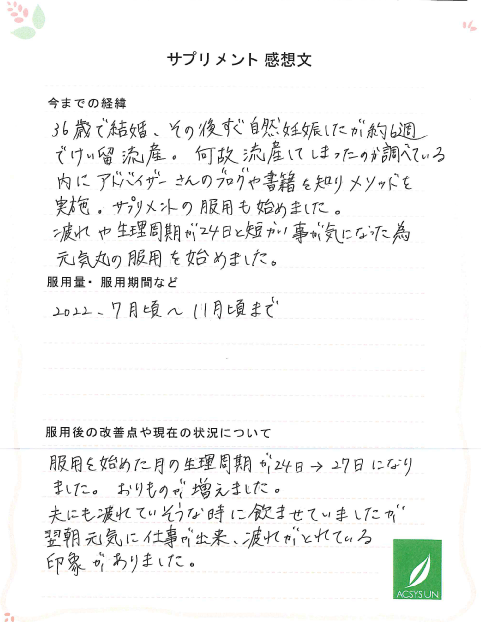 サプリメント 感想文
今までの経緯
36歳で結婚、その後すぐ自然妊娠したが約6週
でけい留流産。何故流産してしまったのか調べている
内にアドバイザーさんのブログや書籍を知りメソッドを
実施。サプリメントの服用も始めました。
疲れや生理周期が24日と短かい事が気になった為
元気丸の服用を始めました。
服用量・服用期間など
2022、7月頃〜11月頃まで
服用後の改善点や現在の状況について
服用を始めた月の生理周期が24日→27日になり
ました。おりものが増えました。
夫にも疲れていそうな時に飲ませていましたが
翌朝元気に仕事が出来、疲れがとれている
印象がありました。
ACSYSUN